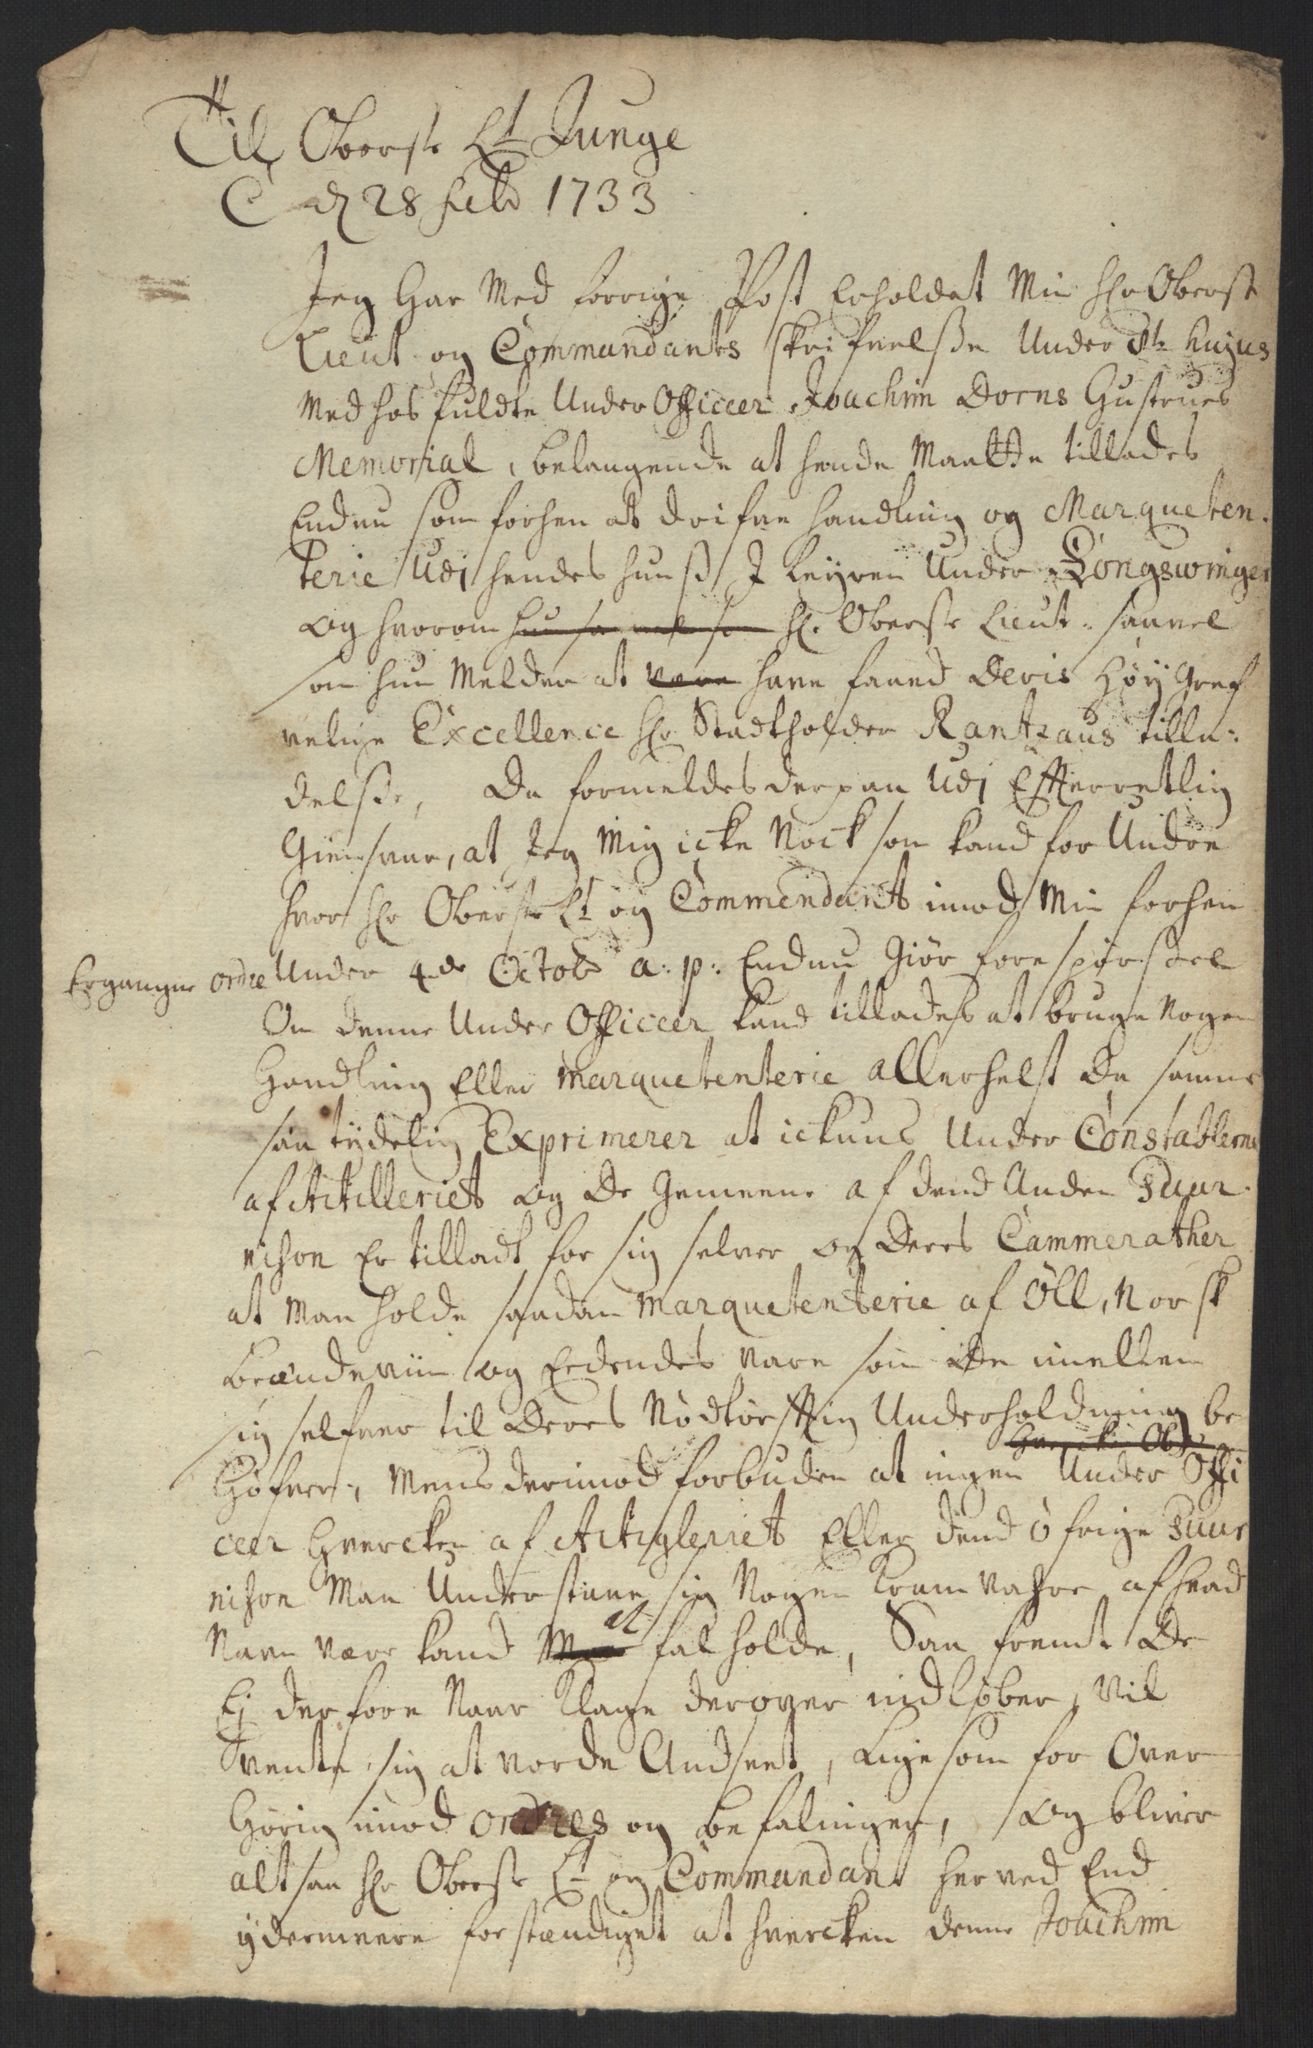 Til Oberste Lt Junge
C d 28 Feb 1733
Jeg har Med forrige Post Erholdet Min Hr Oberst
Lieut og Commandants skrifvelsse Under hujus
Med hos fuldte Under Officeer Joachim Dorns Hustrues
Memorial, belangende at hende Maatte tillades
Endnu som forhen at drifve handling og Marqueten-
terie Udj hendes huuss I Leyren Under Kongswinger
og hvorom hun saavel som Hr Oberste Lieut. saavel
som hun Melder at være have faaed Deris Høy Gref
velige Excellence Hr Stadtholder Rantzaus tilla-
delsse, Da formeldes derpaa Udj Efterretlig
Giensvar, at Jeg Mig icke Nock som kand for Undre
hvor Hr Oberste Lt og Commendant imod Min forhen
Ergangne ordre Under 4de Octob a: p: Endnu Giør forespørsel
Om denne Under Officeer kand tillades at bruge Nogen
Handling Eller Marquetenterie allerhelst Da samme
saa tydelig Exprimerer at ickuns Under Constablerne
af Artilleriet og De Gemeene af dend Anden Guar-
nison Er tilladt for sig selver og Deres Cammerather
at Maa holde saadan Marquetenterie af Øll, Norsk
brændeviin og Eedendes vare som De imellem
sig selfver til Deres Nødtørfftig Underholdning be
Høfver, Mens derimod forbuden at ingen Under Offi
ceer Hvercken af Artigleriet Eller dend øfrige Guar
nison Maa Understaae sig Nogen Kram Vahre af hvad
Navn være kand at fal holde, Saa fremt De
Ej derfore Naar Klage derover indløber, Vil
vente sig at vorde Andseet, Ligesom for Over
Hørig imod ordres og befalinger, og bliver
altsaa Hr Oberste Lt og Commandant herved End
ydermeere forstændiget at hvercken denne Joachim